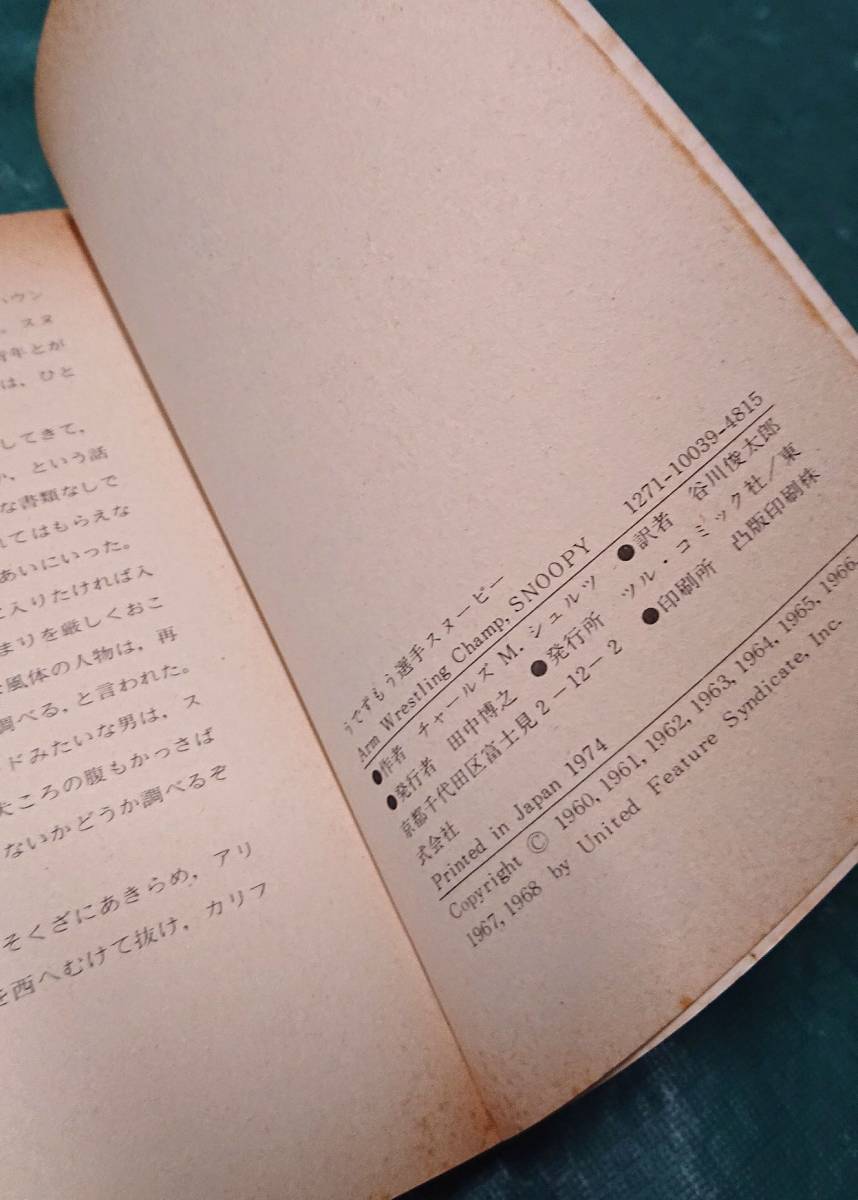 ハウン
。スヌ
青年とが
は，ひと
してきて，
か，という話
な書類なしで
れてはもらえな
あいにいった。
に入りたければ入
まりを厳しくおこ
な風体の人物は，再
調べる，と言われた。
ドみたいな男は，ス
犬ころの腹もかっさば
ないかどうか調べるぞ
そくざにあきらめ，アリ
を西へむけて抜け，カリフ
うでずもう選手スヌーピー
Arm Wrestling Champ, SNOOPY 1271-10039-4815
●作者 チャールズ M. シュルツ ●訳者 谷川俊太郎
●発行者 田中博之 ●発行所 ツル・コミック社／東
京都千代田区富士見2－12－2 ●印刷所 凸版印刷株
式会社
Printed in Japan 1974
Copyright © 1960, 1961, 1962, 1963, 1964, 1965, 1966,
1967, 1968 by United Feature Syndicate, Inc.